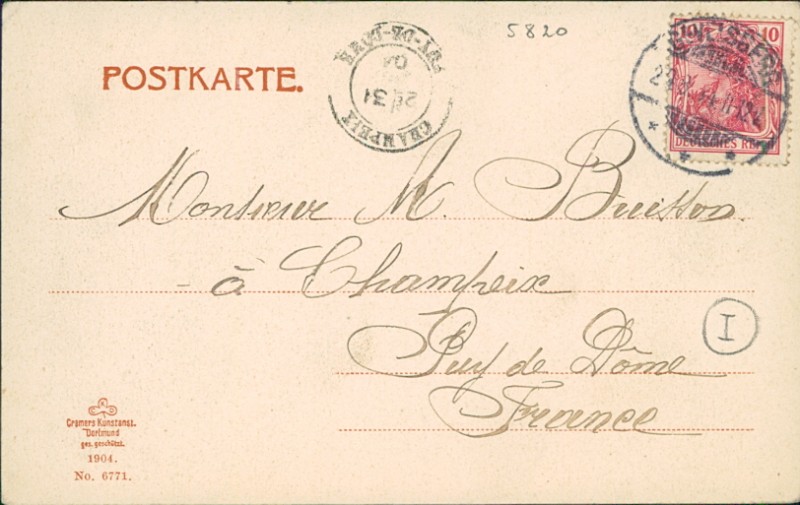 5820
POSTKARTE.
PUY-DE-DOME
31
04
CHAMPEIX
10 10
DEUTSCHES REICH
Monsieur M. Buisson.
- à Champeix
Puy de Dôme
France
I
Cramers Kunstanst.
Dortmund
ges. geschützt.
1904.
No. 6771.